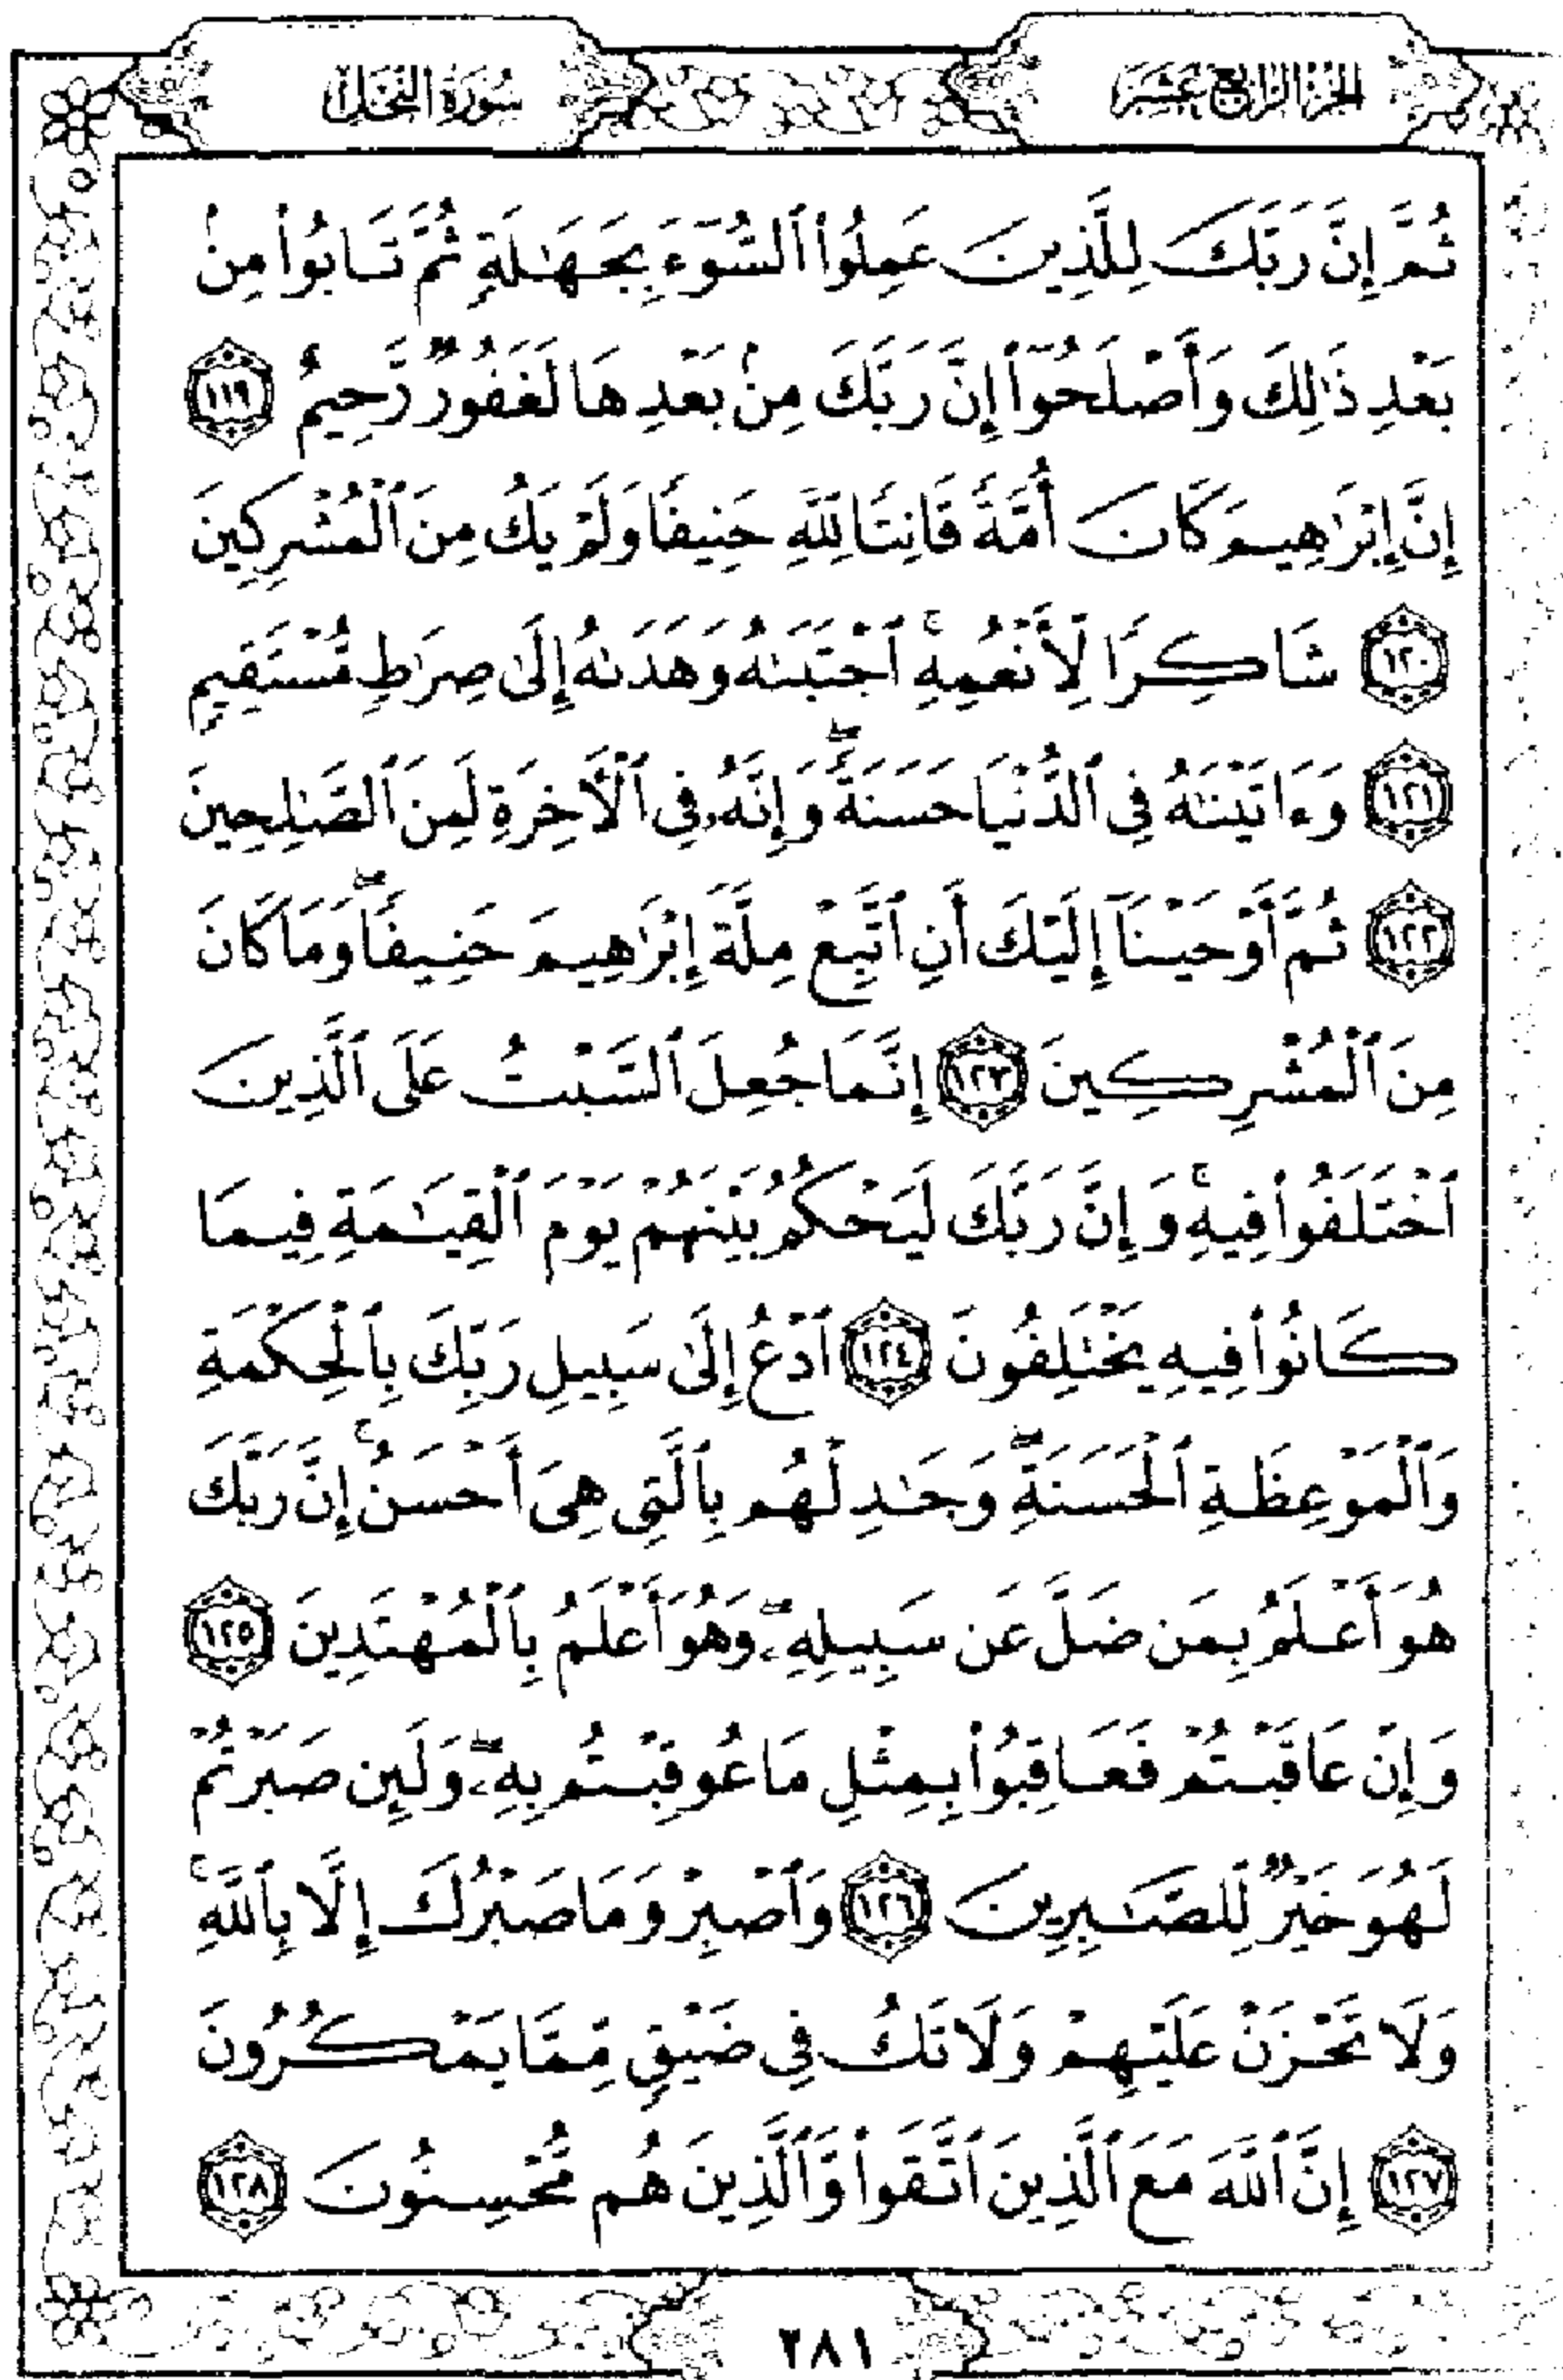 الجزء الرابع عشر
سورة النحل
ثُمَّ إِنَّ رَبَّكَ لِلَّذِينَ عَمِلُوا۟ ٱلسُّوٓءَ بِجَهَٰلَةٍ ثُمَّ تَابُوا۟ مِنۢ
بَعْدِ ذَٰلِكَ وَأَصْلَحُوٓا۟ إِنَّ رَبَّكَ مِنۢ بَعْدِهَا لَغَفُورٌ رَّحِيمٌ ١١٩
إِنَّ إِبْرَٰهِيمَ كَانَ أُمَّةً قَانِتًا لِّلَّهِ حَنِيفًا وَلَمْ يَكُ مِنَ ٱلْمُشْرِكِينَ
١٢٠ شَاكِرًا لِّأَنْعُمِهِ ۚ ٱجْتَبَىٰهُ وَهَدَىٰهُ إِلَىٰ صِرَٰطٍ مُّسْتَقِيمٍ
١٢١ وَءَاتَيْنَٰهُ فِى ٱلدُّنْيَا حَسَنَةً ۖ وَإِنَّهُۥ فِى ٱلْأَخِرَةِ لَمِنَ ٱلصَّٰلِحِينَ
١٢٢ ثُمَّ أَوْحَيْنَآ إِلَيْكَ أَنِ ٱتَّبِعْ مِلَّةَ إِبْرَٰهِيمَ حَنِيفًا ۖ وَمَا كَانَ
مِنَ ٱلْمُشْرِكِينَ ١٢٣ إِنَّمَا جُعِلَ ٱلسَّبْتُ عَلَى ٱلَّذِينَ
ٱخْتَلَفُوا۟ فِيهِ ۚ وَإِنَّ رَبَّكَ لَيَحْكُمُ بَيْنَهُمْ يَوْمَ ٱلْقِيَٰمَةِ فِيمَا
كَانُوا۟ فِيهِ يَخْتَلِفُونَ ١٢٤ ٱدْعُ إِلَىٰ سَبِيلِ رَبِّكَ بِٱلْحِكْمَةِ
وَٱلْمَوْعِظَةِ ٱلْحَسَنَةِ ۖ وَجَٰدِلْهُم بِٱلَّتِى هِىَ أَحْسَنُ ۚ إِنَّ رَبَّكَ
هُوَ أَعْلَمُ بِمَن ضَلَّ عَن سَبِيلِهِۦ ۖ وَهُوَ أَعْلَمُ بِٱلْمُهْتَدِينَ ١٢٥
وَإِنْ عَاقَبْتُمْ فَعَاقِبُوا۟ بِمِثْلِ مَا عُوقِبْتُم بِهِۦ ۖ وَلَئِن صَبَرْتُمْ
لَهُوَ خَيْرٌ لِّلصَّٰبِرِينَ ١٢٦ وَٱصْبِرْ وَمَا صَبْرُكَ إِلَّا بِٱللَّهِ ۚ
وَلَا تَحْزَنْ عَلَيْهِمْ وَلَا تَكُ فِى ضَيْقٍ مِّمَّا يَمْكُرُونَ
١٢٧ إِنَّ ٱللَّهَ مَعَ ٱلَّذِينَ ٱتَّقَوا۟ وَّٱلَّذِينَ هُم مُّحْسِنُونَ ١٢٨
٢٨١